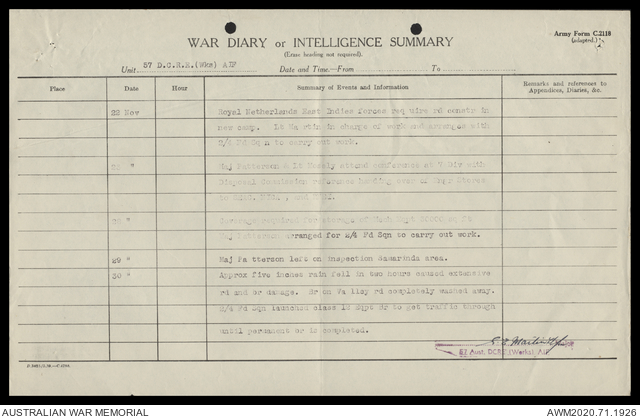 Army Form C.2118
(adapted.)
WAR DIARY or INTELLIGENCE SUMMARY
(Erase heading not required).
Unit 57 D.C.R.E.(Wks) AIF Date and Time.—From To
Place Date Hour Summary of Events and Information Remarks and references to Appendices, Diaries, &c.
22 Nov Royal Netherlands East Indies forces require rd constr in
new camp. Lt Martin in charge of work and arranges with
2/4 Fd Sqn to carry out work.
" Maj Patterson & Lt attend conference at 7 Div with
Disposal Commission reference handing over of Engr Stores
to and
" required for storage of
Maj Patterson arranged for 2/4 Fd Sqn to carry out work.
29 " Maj Pa tterson left on inspection Samarinda area.
30 " Approx five inches rain fell in two hours caused extensive
rd and br damage. Va lley rd completely washed away.
2/4 Fd Sqn launched class 12 Eqpt Br to get traffic through
until permanent br is completed.
57 Aust. DCRE (Works) AIF
AUSTRALIAN WAR MEMORIAL AWM2020.71.1926